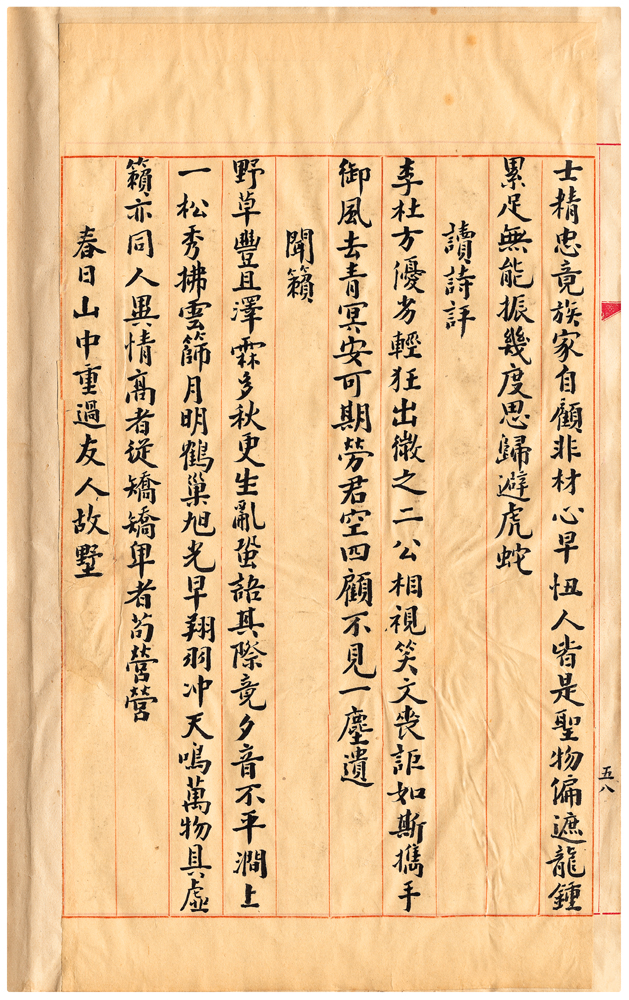 士精忠竟族家自顧非材心早忸人皆是聖物偏遮龍鍾
累足無能振幾度思歸避虎蛇
讀詩評
李杜方優劣輕狂出微之二公相視笑文喪詎如斯攜手
御風去青冥安可期勞君空四顧不見一塵遺
聞籟
野草豐且澤霖多秋更生亂蛩語其際竟夕音不平澗上
一松秀拂雲篩月明鶴巢旭光早翔羽冲天鳴萬物具虛
籟亦同人異情高者從矯矯卑者苟營營
春日山中重過友人故墅
五八